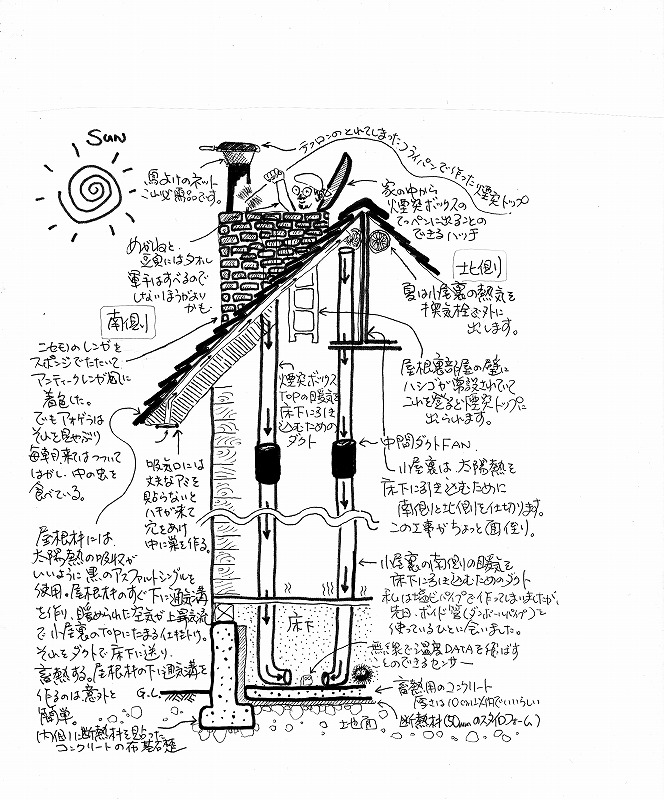 Sun
テフロンのとれてしまったフライパンで作った煙突トップ
鳥よけのネット
これ必需品です。
家の中から
煙突ボックスの
てっペンに出ることの
できるハッチ
めがねと
にはタオル
軍手はすべるので
しないほうがよい
かも
北側
夏は小屋裏の熱気を
換気栓で外に
出します。
南側
ニセモノのレンガを
スポンジでたたいて
アンティークレンガ風に
着色した。
でもアオゲラは
それを見やぶり
毎朝来てはつついて
はがし、中の虫を
食べている。
煙突ボックス
TOPの暖気を
床下に引き込むための
ダクト
屋根裏部屋の壁に
ハシゴが常設されていて
これを登ると煙突トップに
出られます。
中間ダクトFAN
小屋裏は、太陽熱を
床下に引き込むために
南側と北側を仕切ります。
この工事がちょっと面倒り。
吸気口には
丈夫なアミを
貼らないと
ハチが来て
穴をあけ
中に巣を作る。
屋根材には、
太陽熱の吸収が
いいように黒のアスファルトシングルを
使用。屋根材のすぐ下に通気溝
を作り、暖められた空気が上昇気流
で小屋裏のTOPにたまる仕組トリ。
それをダクトで床下に送り、
蓄熱する。屋根材の下に通気溝を
作るのは意外と
簡単。
小屋裏の南側の暖気を
床下に引き込むためのダクト
私は塩ビパイプで作ってしまいましたが、
先日、ボイド管(ダンボールパイプ)を
使っているひとに会いました。
床下
無線で温度DATAを飛ばす
ことのできるセンサー
G.L
蓄熱用のコンクリート
厚さは10cm以内でいいらしい
断熱材(50mmのスタイロフォーム)
地面
内側に断熱材を貼った
コンクリートの布基礎